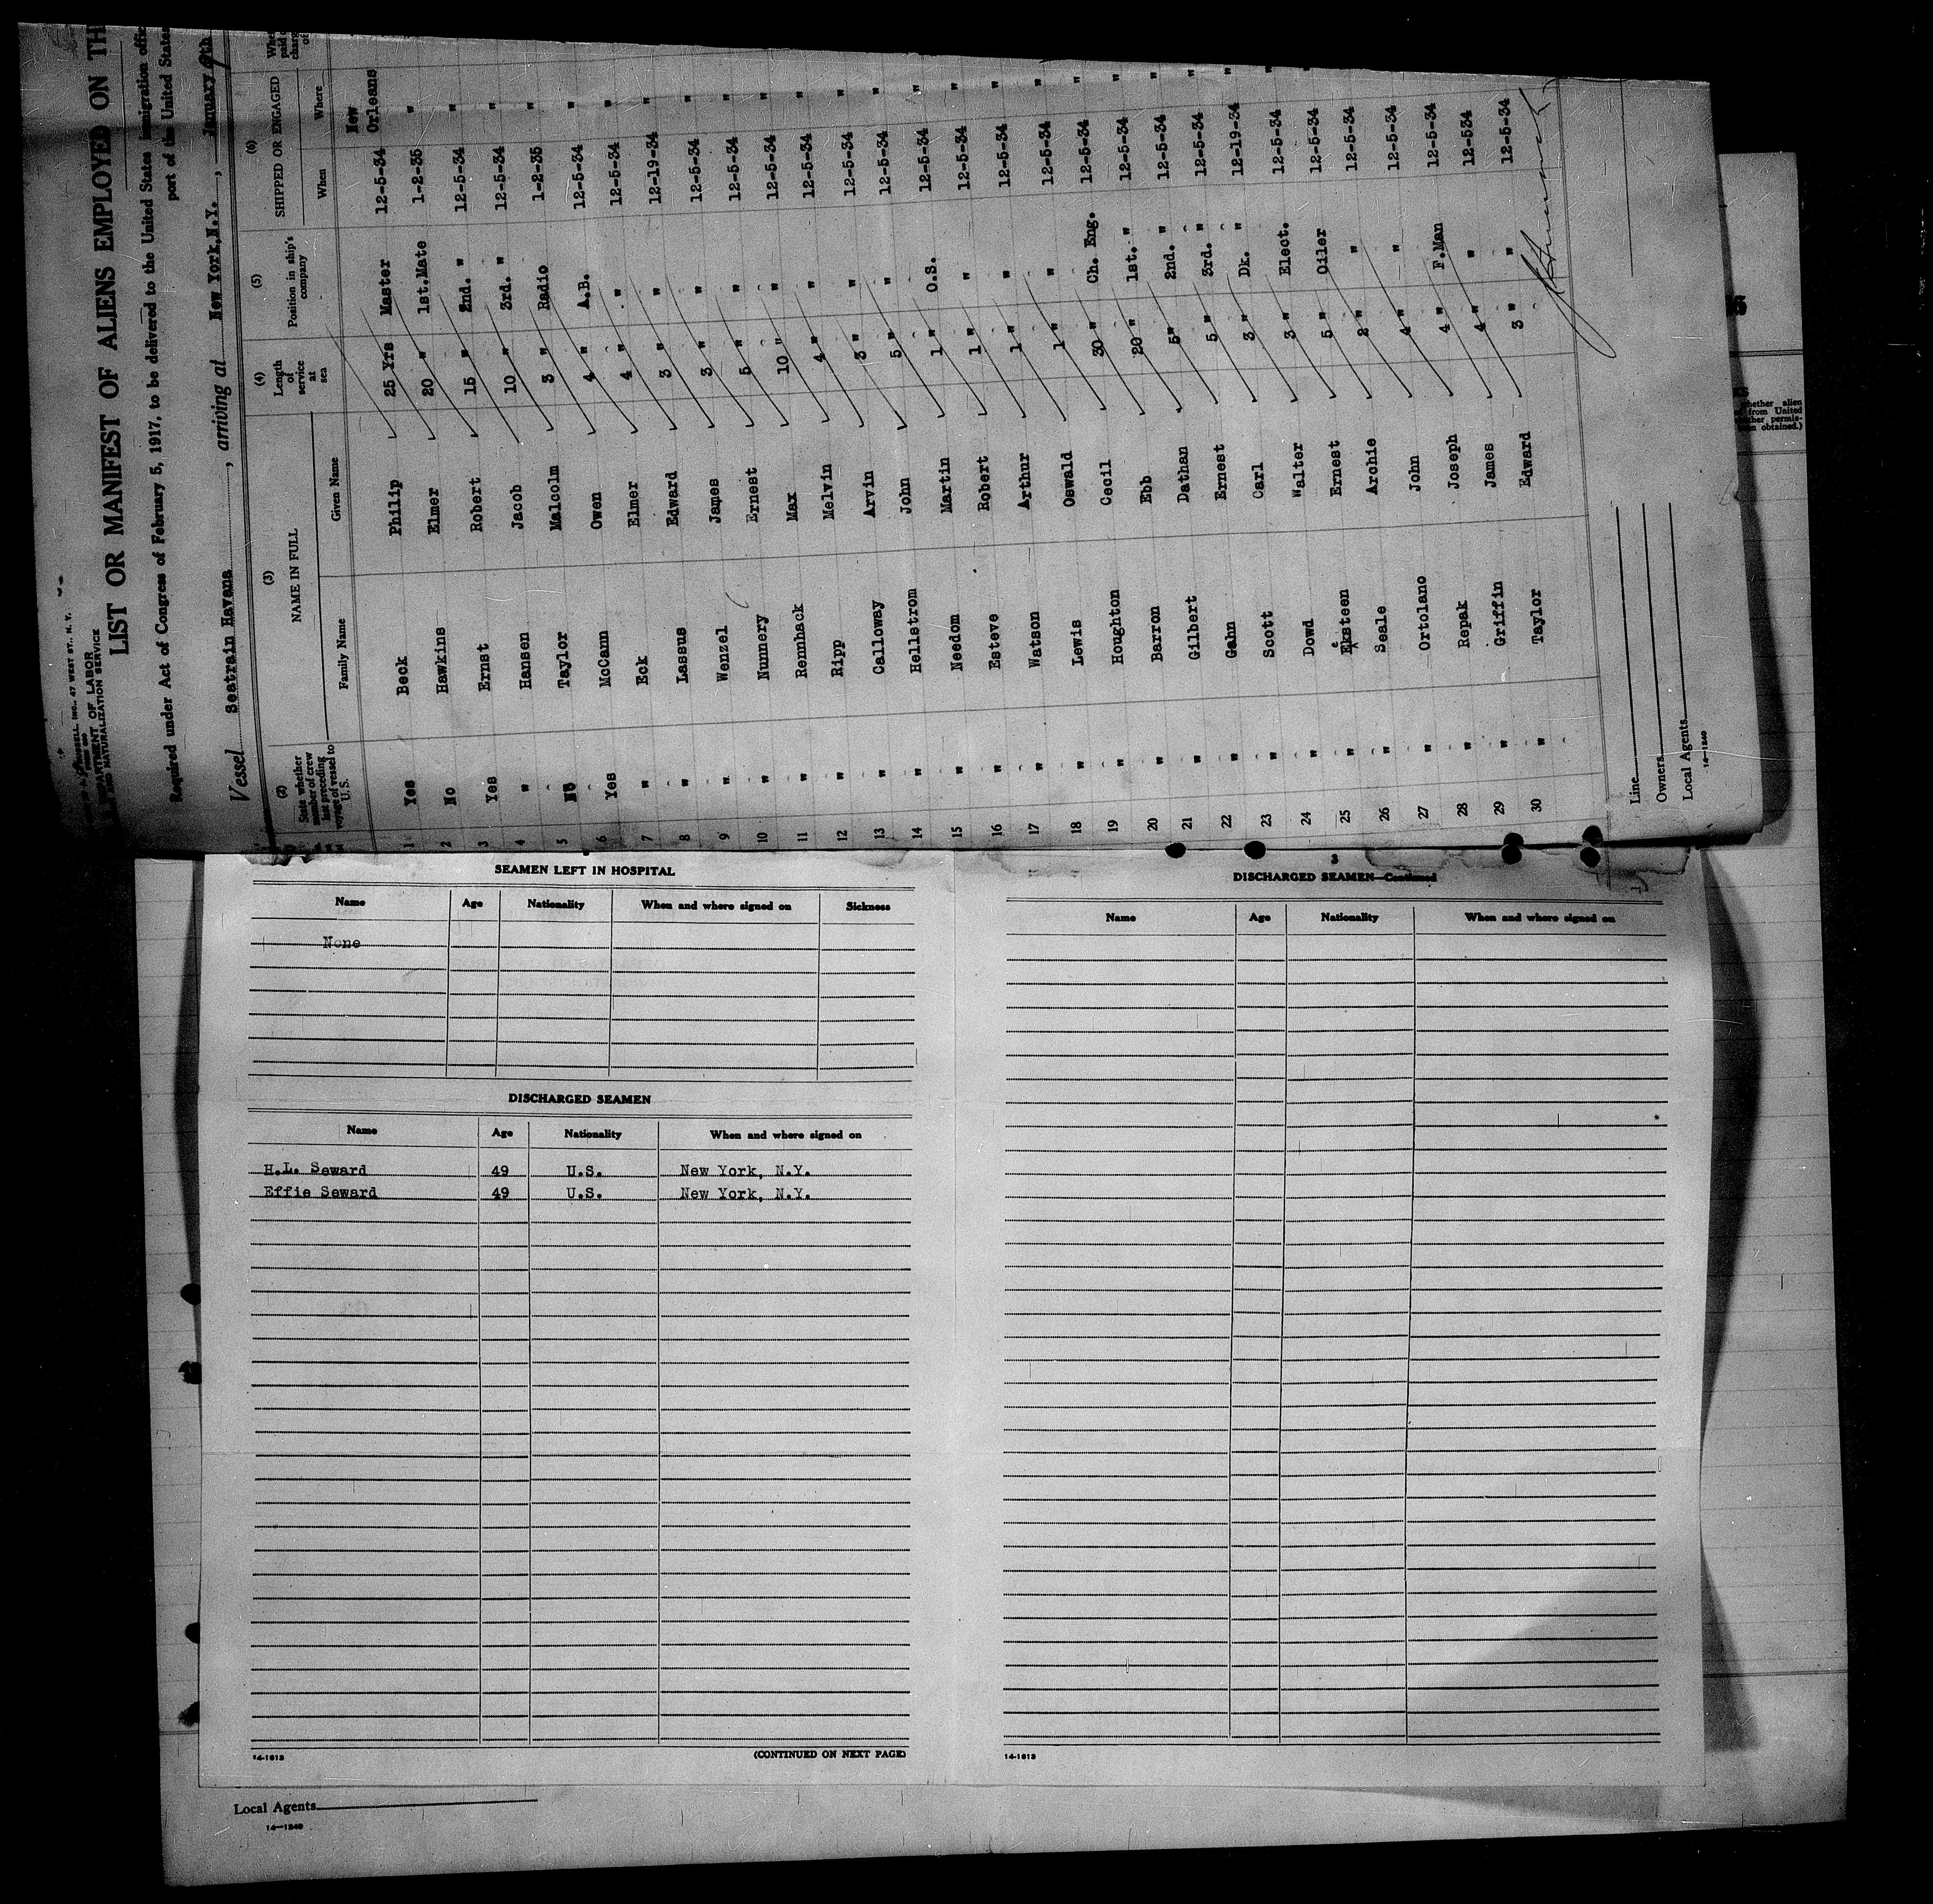 LIST OR MANIFEST OF ALIENS EMPLOYED ON TH
Required under Act of Congress of February 5, 1917, to be delivered to the United States immigration offic
port of the United States
DEPARTMENT OF LABOR
AND NATURALIZATION SERVICE
Vessel Seatrain Havana, arriving at New York, N.Y., January
(2) State whether member of crew last preceding voyage of vessel to U.S.
(3) NAME IN FULL
Family Name Given Name
(4) Length of service at sea
(5) Position in ship's company
(6) SHIPPED OR ENGAGED
When Where
1 Yes Beck Philip 25 Yrs Master 12-5-34 New Orleans
2 No Hawkins Elmer 20 " 1st.Mate 1-2-35 "
3 Yes Ernst Robert 15 " 2nd. " 12-5-34 "
4 " Hansen Jacob 10 " 3rd. " 12-5-34 "
5 No Taylor Malcolm 3 " Radio 1-2-35 "
6 Yes McCann Owen 4 " A.B. 12-5-34 "
7 " Eck Elmer 4 " " 12-5-34 "
8 " Lassus Edward 3 " " 12-19-34 "
9 " Wenzel James 3 " " 12-5-34 "
10 " Nunnery Ernest 5 " " 12-5-34 "
11 " Rennhack Max 10 " " 12-5-34 "
12 " Ripp Melvin 4 " " 12-5-34 "
13 " Calloway Arvin 3 " " 12-5-34 "
14 " Hellstrom John 5 " " 12-5-34 "
15 " Needom Martin 1 " O.S. 12-5-34 "
16 " Esteve Robert 1 " " 12-5-34 "
17 " Watson Arthur 1 " " 12-5-34 "
18 " Lewis Oswald 1 " " 12-5-34 "
19 " Houghton Cecil 30 " Ch. Eng. 12-5-34 "
20 " Barron Ebb 20 " 1st. " 12-5-34 "
21 " Gilbert Dathan 5 " 2nd. " 12-5-34 "
22 " Gahn Ernest 5 " 3rd. " 12-5-34 "
23 " Scott Carl 3 " Dk. " 12-19-34 "
24 " Dowd Walter 3 " Elect. 12-5-34 "
25 " Eeksteen Ernest 5 " Oiler 12-5-34 "
26 " Seale Archie 2 " " 12-5-34
27 " Ortolano John 4 " " 12-5-34
28 " Repak Joseph 4 " F.Man 12-5-34
29 " Griffin James 4 " " 12-534
30 " Taylor Edward 3 " " 12-5-34
Line
Owners
Local Agents
14-1240
whether alien
from United
permis-
obtained.)
SEAMEN LEFT IN HOSPITAL
Name Age Nationality When and where signed on Sickness
None
DISCHARGED SEAMEN
Name Age Nationality When and where signed on
H.L. Seward 49 U.S. New York, N.Y.
Effie Seward 49 U.S. New York, N.Y.
14-1613
(CONTINUED ON NEXT PAGE)
3
DISCHARGED SEAMEN—Continued
Name Age Nationality When and where signed on
14-1613
Local Agents
14-1240